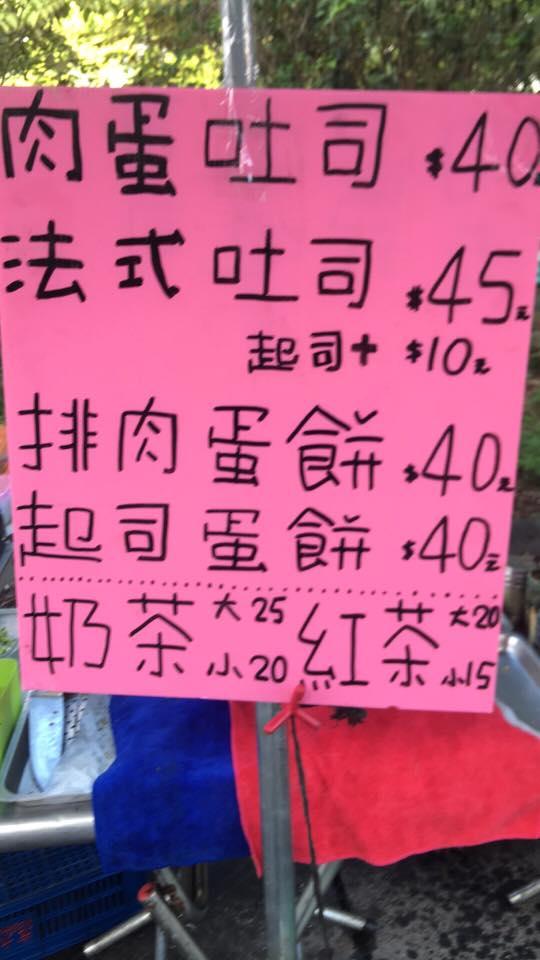 肉蛋吐司 $40
法式吐司 $45元
起司+ $10元
排肉蛋餅 $40元
起司蛋餅 $40元
奶茶 大25 小20 紅茶 大20 小15